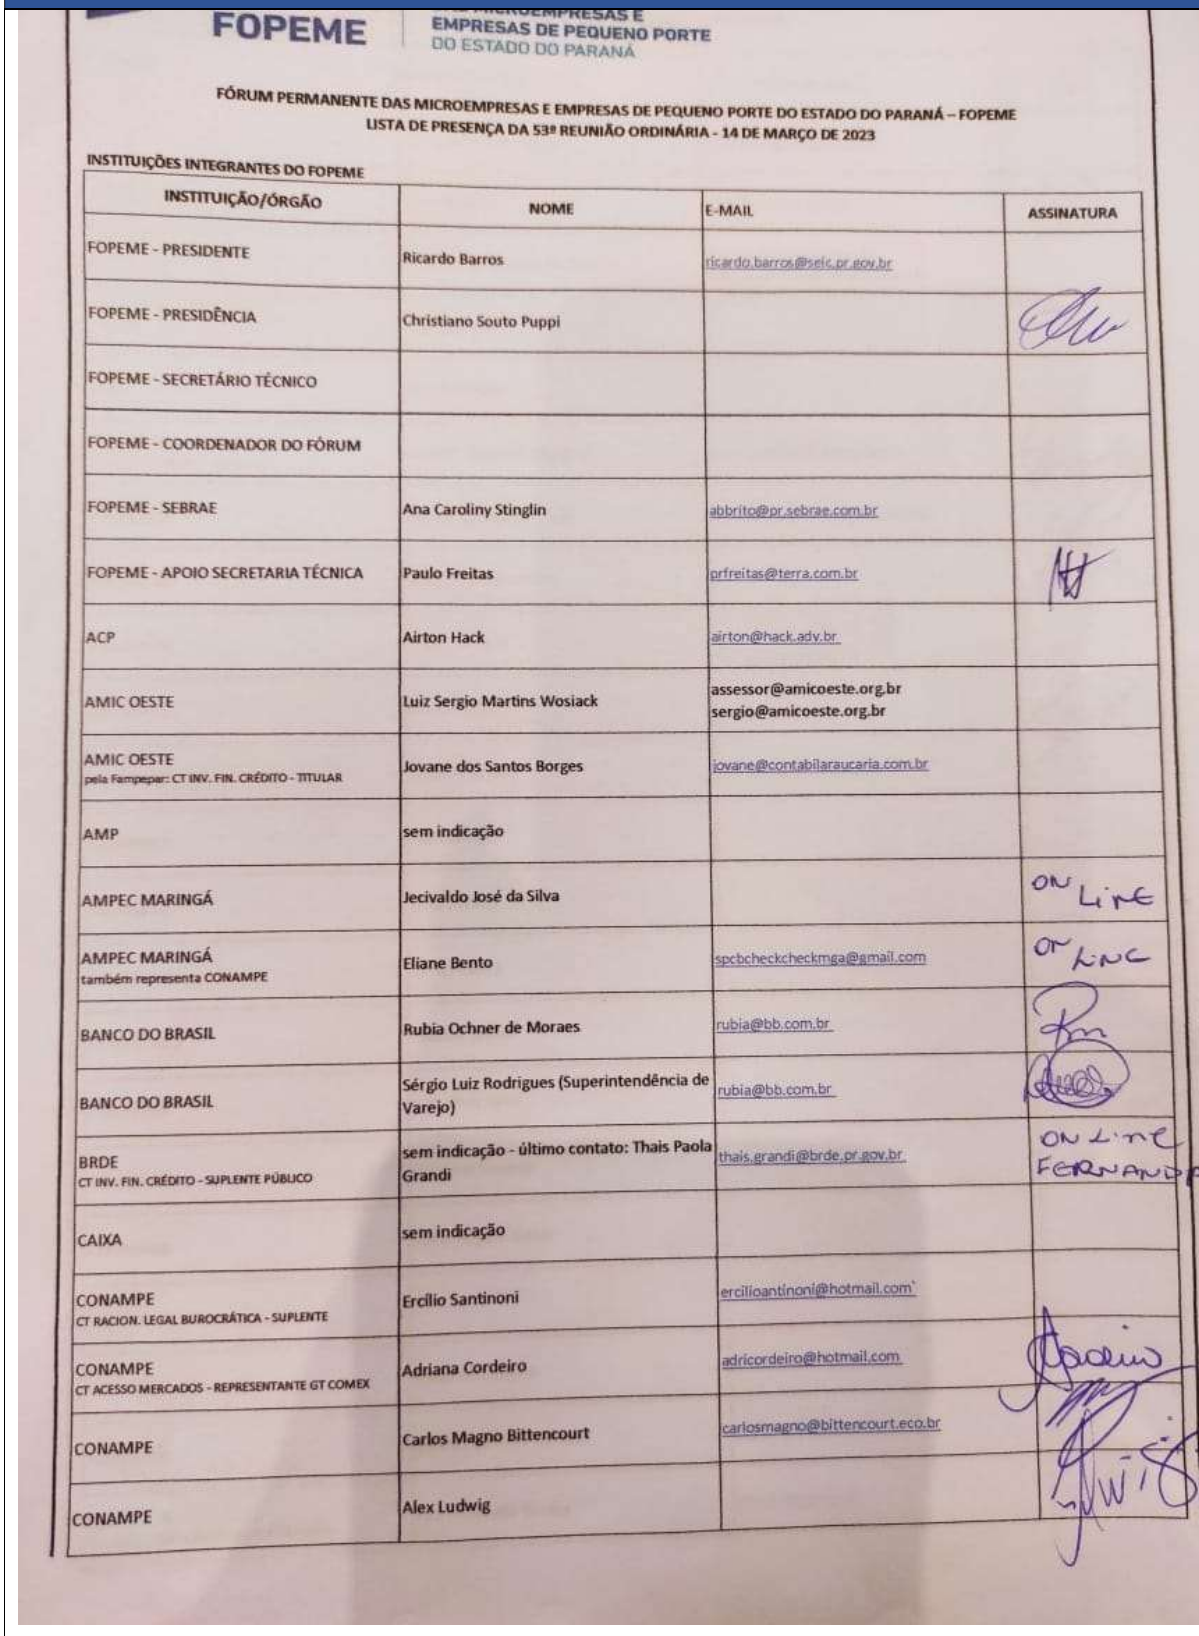 FOPEME
DAS MICROEMPRESAS E
EMPRESAS DE PEQUENO PORTE
DO ESTADO DO PARANÁ
FÓRUM PERMANENTE DAS MICROEMPRESAS E EMPRESAS DE PEQUENO PORTE DO ESTADO DO PARANÁ – FOPEME
LISTA DE PRESENÇA DA 53ª REUNIÃO ORDINÁRIA - 14 DE MARÇO DE 2023
INSTITUIÇÕES INTEGRANTES DO FOPEME
INSTITUIÇÃO/ÓRGÃO NOME E-MAIL ASSINATURA
FOPEME - PRESIDENTE Ricardo Barros ricardo.barros@seic.pr.gov.br
FOPEME - PRESIDÊNCIA Christiano Souto Puppi
FOPEME - SECRETÁRIO TÉCNICO
FOPEME - COORDENADOR DO FÓRUM
FOPEME - SEBRAE Ana Caroliny Stinglin abbrito@pr.sebrae.com.br
FOPEME - APOIO SECRETARIA TÉCNICA Paulo Freitas prfreitas@terra.com.br
ACP Airton Hack airton@hack.adv.br
AMIC OESTE Luiz Sergio Martins Wosiack assessor@amicoeste.org.br
sergio@amicoeste.org.br
AMIC OESTE
pela Fampepar: CT INV. FIN. CRÉDITO - TITULAR Jovane dos Santos Borges jovane@contabilaraucaria.com.br
AMP sem indicação
AMPEC MARINGÁ Jecivaldo José da Silva ON
LiNE
AMPEC MARINGÁ
também representa CONAMPE Eliane Bento spcbcheckcheckmga@gmail.com ON
LiNE
BANCO DO BRASIL Rubia Ochner de Moraes rubia@bb.com.br
BANCO DO BRASIL Sérgio Luiz Rodrigues (Superintendência de
Varejo) rubia@bb.com.br
BRDE
CT INV. FIN. CRÉDITO - SUPLENTE PÚBLICO sem indicação - último contato: Thais Paola
Grandi thais.grandi@brde.pr.gov.br ON LiNE
FERNANDA
CAIXA sem indicação
CONAMPE
CT RACION. LEGAL BUROCRÁTICA - SUPLENTE Ercílio Santinoni ercilioantinoni@hotmail.com`
CONAMPE
CT ACESSO MERCADOS - REPRESENTANTE GT COMEX Adriana Cordeiro adricordeiro@hotmail.com
CONAMPE Carlos Magno Bittencourt carlosmagno@bittencourt.eco.br
CONAMPE Alex Ludwig